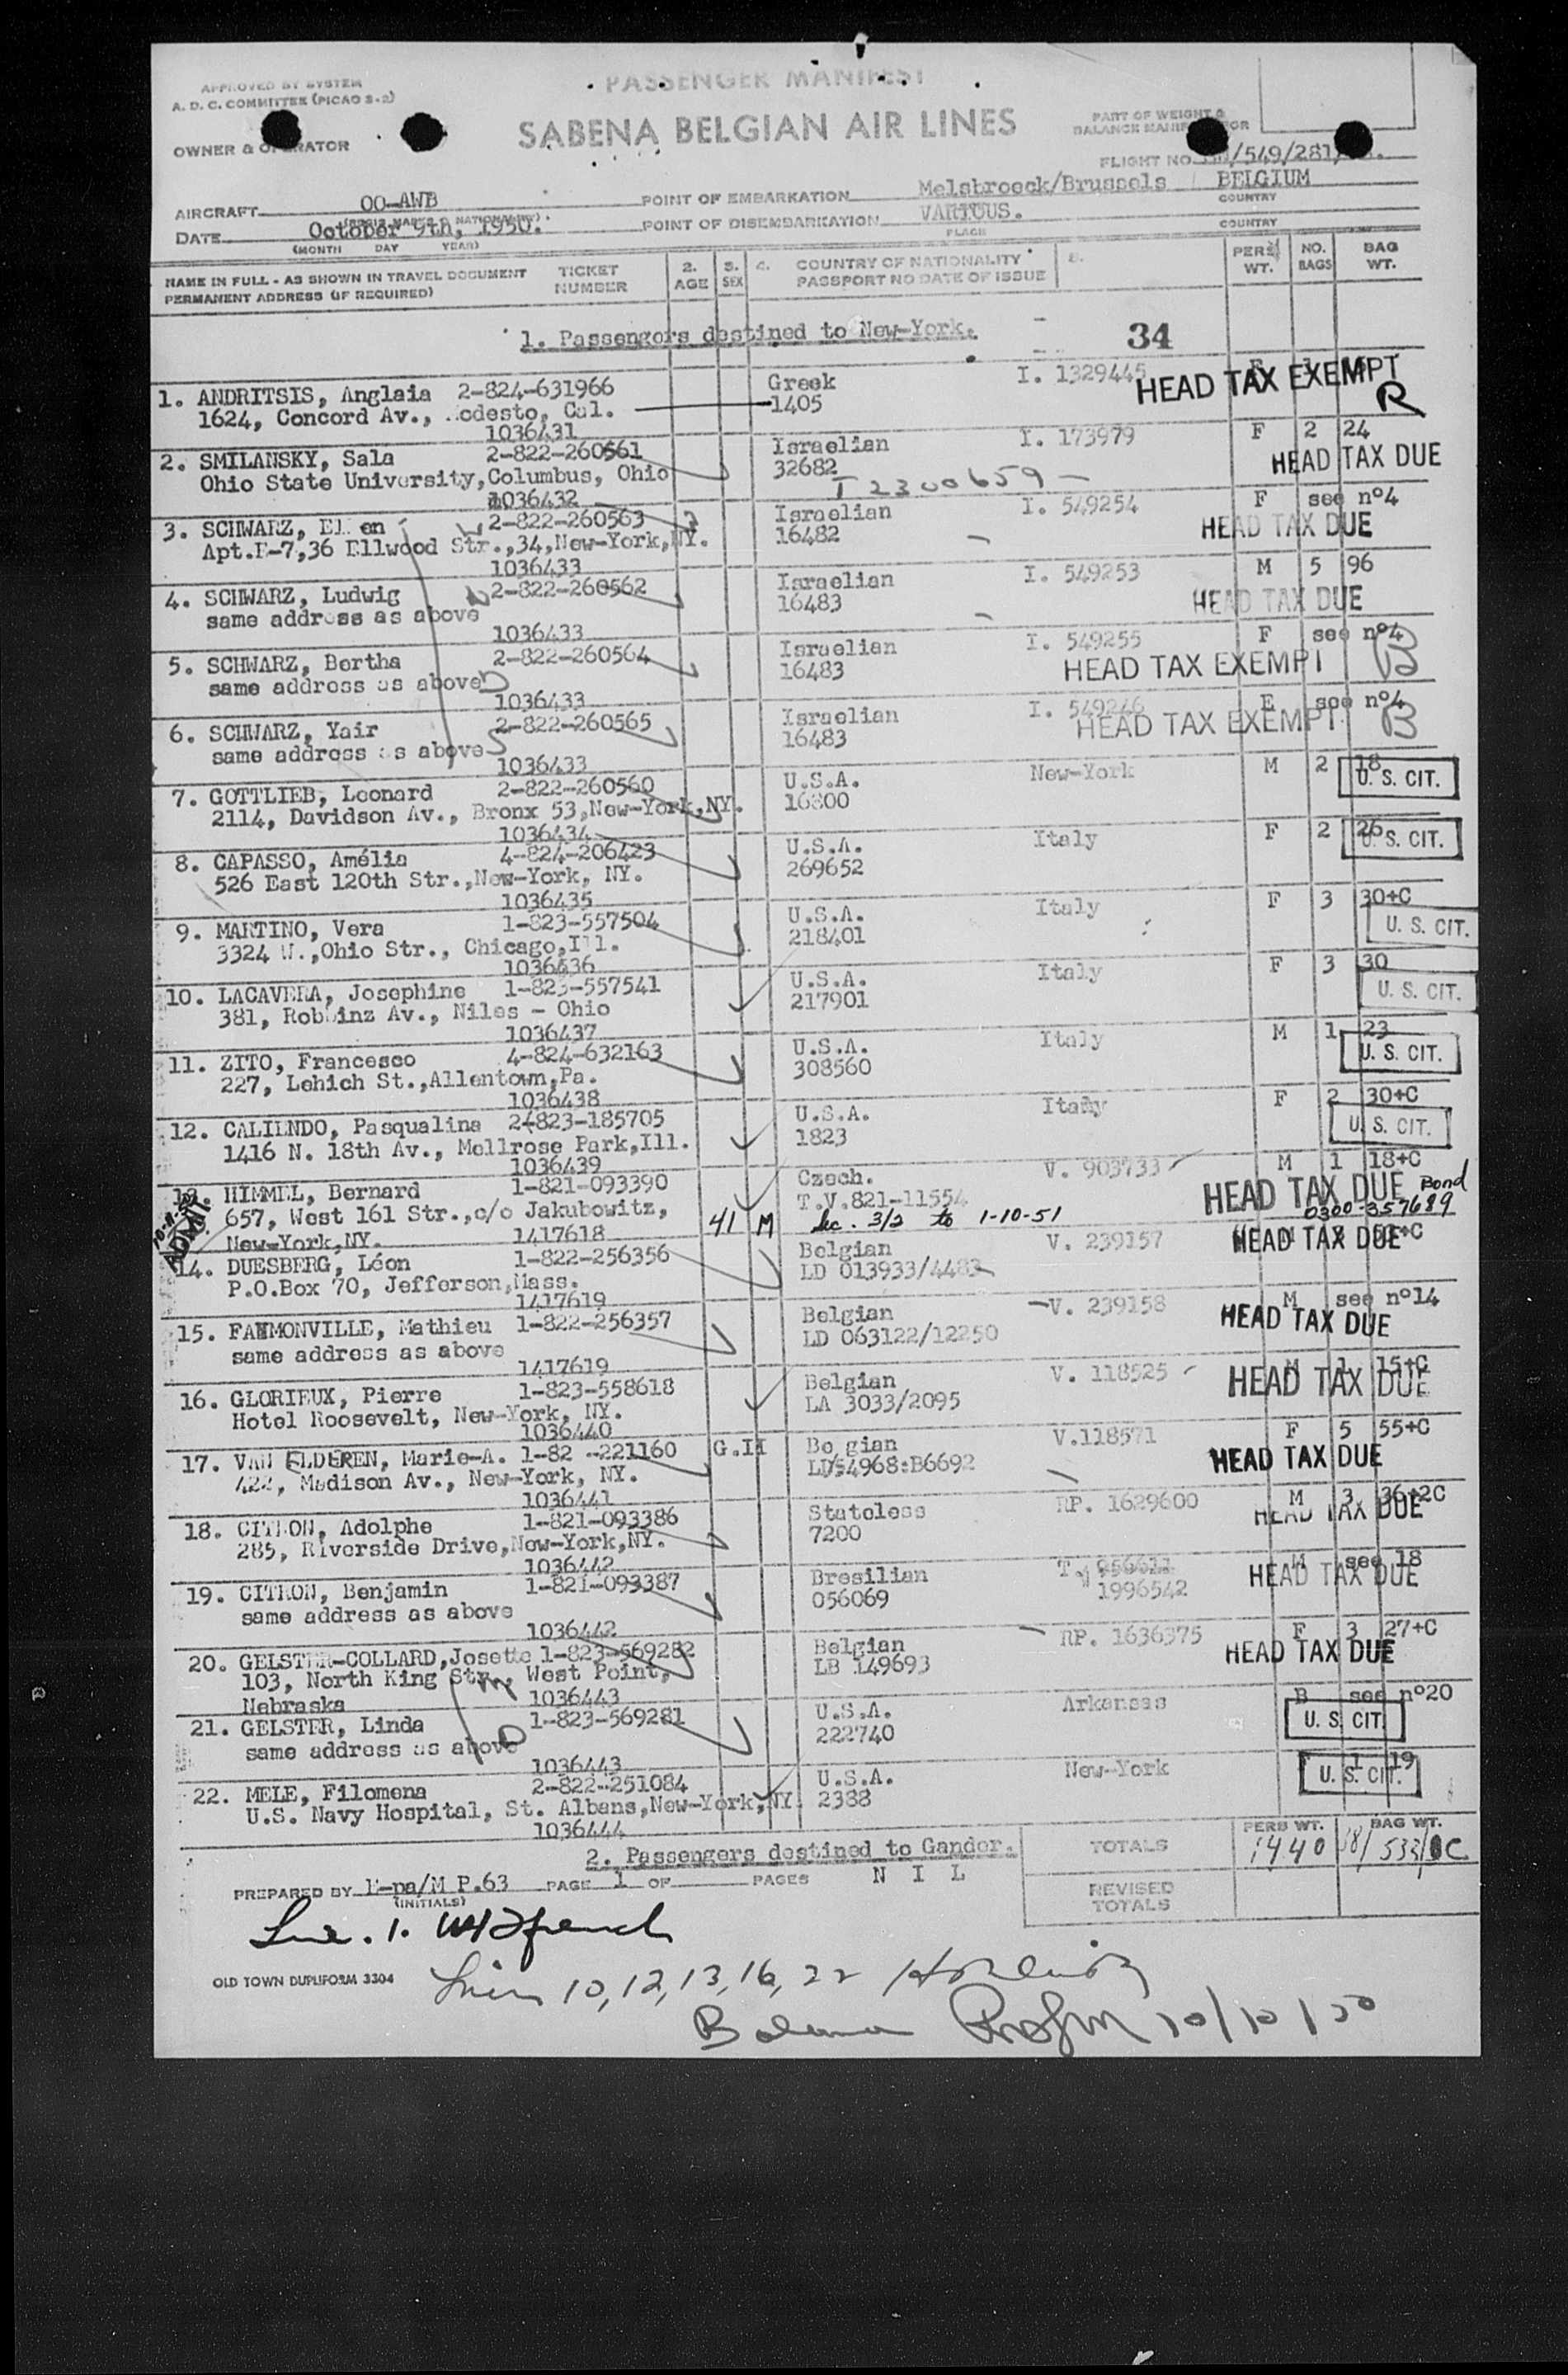 APPROVED BY SYSTEM
A. D. C. COMMITTEE (PICAO S-2)
PASSENGER MANIFEST
SABENA BELGIAN AIR LINES
PART OF WEIGHT &
BALANCE
OWNER & OPERATOR
FLIGHT NO. /549/281/
AIRCRAFT OO-AWB
POINT OF EMBARKATION Melsbroeck/Brussels BELGIUM
COUNTRY
DATE October 9th, 1950.
POINT OF DISEMBARKATION VARIOUS.
PLACE
COUNTRY
(MONTH DAY YEAR)
NAME IN FULL - AS SHOWN IN TRAVEL DOCUMENT
PERMANENT ADDRESS (IF REQUIRED)
TICKET
NUMBER
2.
AGE
3.
SEX
4.
COUNTRY OF NATIONALITY
PASSPORT NO DATE OF ISSUE
PERS
WT.
NO.
BAGS
BAG
WT.
1. Passengers destined to New-York.
34
1. ANDRITSIS, Anglaia 2-824-631966 Greek I. 1329445 HEAD TAX EXEMPT
1624, Concord Av., odesto, Cal. 1405 R
1036431
2. SMILANSKY, Sala 2-822-260561 Israelian I. 173979 F 2 24
Ohio State University, Columbus, Ohio 32682 HEAD TAX DUE
T 2300659 -
1036432
3. SCHWARZ, Ellen 2-822-260563 Israelian I. 549254 F see nº4
Apt.E-7,36 Ellwood Str.,34,New-York,NY. 16482 HEAD TAX DUE
1036433
4. SCHWARZ, Ludwig 2-822-260562 Israelian I. 549253 M 5 96
same address as above 16483 HEAD TAX DUE
1036433
5. SCHWARZ, Bertha 2-822-260564 Israelian I. 549255 F see nº4
same address as above 16483 HEAD TAX EXEMPT B
1036433
6. SCHWARZ, Yair 2-822-260565 Israelian I. 549246 see nº4
same address as above 16483 HEAD TAX EXEMPT B
1036433
7. GOTTLIEB, Leonard 2-822-260560 U.S.A. New-York M 2 18
2114, Davidson Av., Bronx 53,New-York,NY. 16800 U. S. CIT.
1036434
8. CAPASSO, Amélia 4-824-206423 U.S.A. Italy F 2 26
526 East 120th Str.,New-York, NY. 269652 U. S. CIT.
1036435
9. MARTINO, Vera 1-823-557504 U.S.A. Italy F 3 30+C
3324 W.,Ohio Str., Chicago,Ill. 218401 U. S. CIT.
1036436
10. LACAVERA, Josephine 1-823-557541 U.S.A. Italy F 3 30
381, Robbinz Av., Niles - Ohio 217901 U. S. CIT.
1036437
11. ZITO, Francesco 4-824-632163 U.S.A. Italy M 1 23
227, Lehich St.,Allentown,Pa. 308560 U. S. CIT.
1036438
12. CALIENDO, Pasqualina 2-823-185705 U.S.A. Italy F 2 30+C
1416 N. 18th Av., Mellrose Park,Ill. 1823 U. S. CIT.
1036439
13. HIMMEL, Bernard 1-821-093390 Czech. V. 903733 M 1 18+C
657, West 161 Str.,c/o Jakubowitz, T.V.821-11554 HEAD TAX DUE Bond
ADMIT 41 M Sec. 3/2 to 1-10-51 0300-357689
New-York,NY. 1417618
14. DUESBERG, Léon 1-822-256356 Belgian V. 239157 HEAD TAX DUE
P.O.Box 70, Jefferson,Mass. LD 013933/4483
1417619
15. FAYMONVILLE, Mathieu 1-822-256357 Belgian V. 239158 M see nº14
same address as above LD 063122/12250 HEAD TAX DUE
1417619
16. GLORIEUX, Pierre 1-823-558618 Belgian V. 118525 M 1 15+C
Hotel Roosevelt, New-York, NY. LA 3033/2095 HEAD TAX DUE
1036440
17. VAN ELDEREN, Marie-A. 1-82 -221160 G.II Belgian V.118571 F 5 55+C
422, Madison Av., New-York, NY. LD54968:B6692 HEAD TAX DUE
1036441
18. CITRON, Adolphe 1-821-093386 Stateless RP. 1629600 M 3 36+2C
285, Riverside Drive,New-York,NY. 7200 HEAD TAX DUE
1036442
19. CITRON, Benjamin 1-821-093387 Bresilian T. M see 18
same address as above 056069 1996542 HEAD TAX DUE
1036442
20. GELSTER-COLLARD,Josette 1-823-569282 Belgian RP. 1636375 F 3 27+C
103, North King Str., West Point, LB 149693 HEAD TAX DUE
Nebraska 1036443
21. GELSTER, Linda 1-823-569281 U.S.A. Arkansas B see nº20
same address as above 222740 U. S. CIT.
1036443
22. MELE, Filomena 2-822-251084 U.S.A. New-York 1 19
U.S. Navy Hospital, St. Albans,New-York,NY. 2388 U. S. CIT.
1036444
2. Passengers destined to Gander.
N I L
TOTALS
PERS WT.
1440
BAG WT.
REVISED
TOTALS
PREPARED BY E-pa/M P.63 PAGE 1 OF PAGES
(INITIALS)
OLD TOWN DUPLIFORM 3304
10, 12, 13, 16, 22
10/10/50